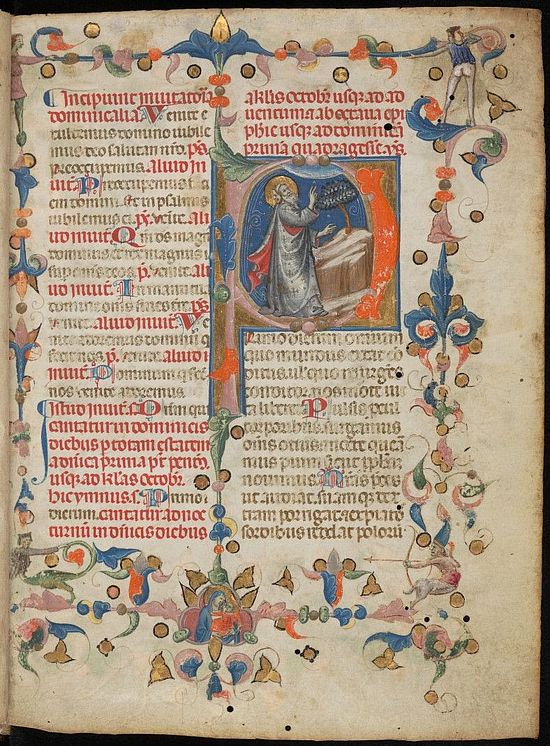 Incipiunt inuitatoria
dominicalia. Venite e
xultemus domino iubile
mus deo salutari nr̄o. ps̄
preoccupemus. aliud in
uit̄. Preoccupemus faci
em domini. et in psalmis
iubilemus ei. ps̄. venite. ali
ud inuit̄. Qm̄ deus magn
dominus et rex magnus
super omnes deos. p̄. venite. al
ud inuit̄. In manu tua
domine omnes fines terre. ps̄
venite. aliud inuit̄. Ve
p̄. venite. aliud
inuit̄. Dominum qui fec
nos venite adoremus.
Istud inuit̄. Dnm qui
cantatur in dominicis
diebus per totam estatem
a dn̄ica prima pt̄ pentec̄.
usq̄ ad kl̄as octobr̄.
hic ymnus. s. Primo
dierum. cantatur ad noc
turnum in dn̄icis diebus
a kl̄is octobr̄ usq̄ ad ad
uentum et ab octaua epi
phīe usq̄ ad dominicā
prima quadragesie. ys̄.
Primo dierum omnium
quo mundus extat co
ditus uel quo resurgēs
conditor nos morte ui
cta liberet. Pulsis pcul
torporibus surgamus
om̄s ocius et nocte quera
mus pium sicut pph̄m
nouimus. Nostras preces
ut audiat suam q̄ dex
tram porrigat et expiatos
sordibus reddat polorū